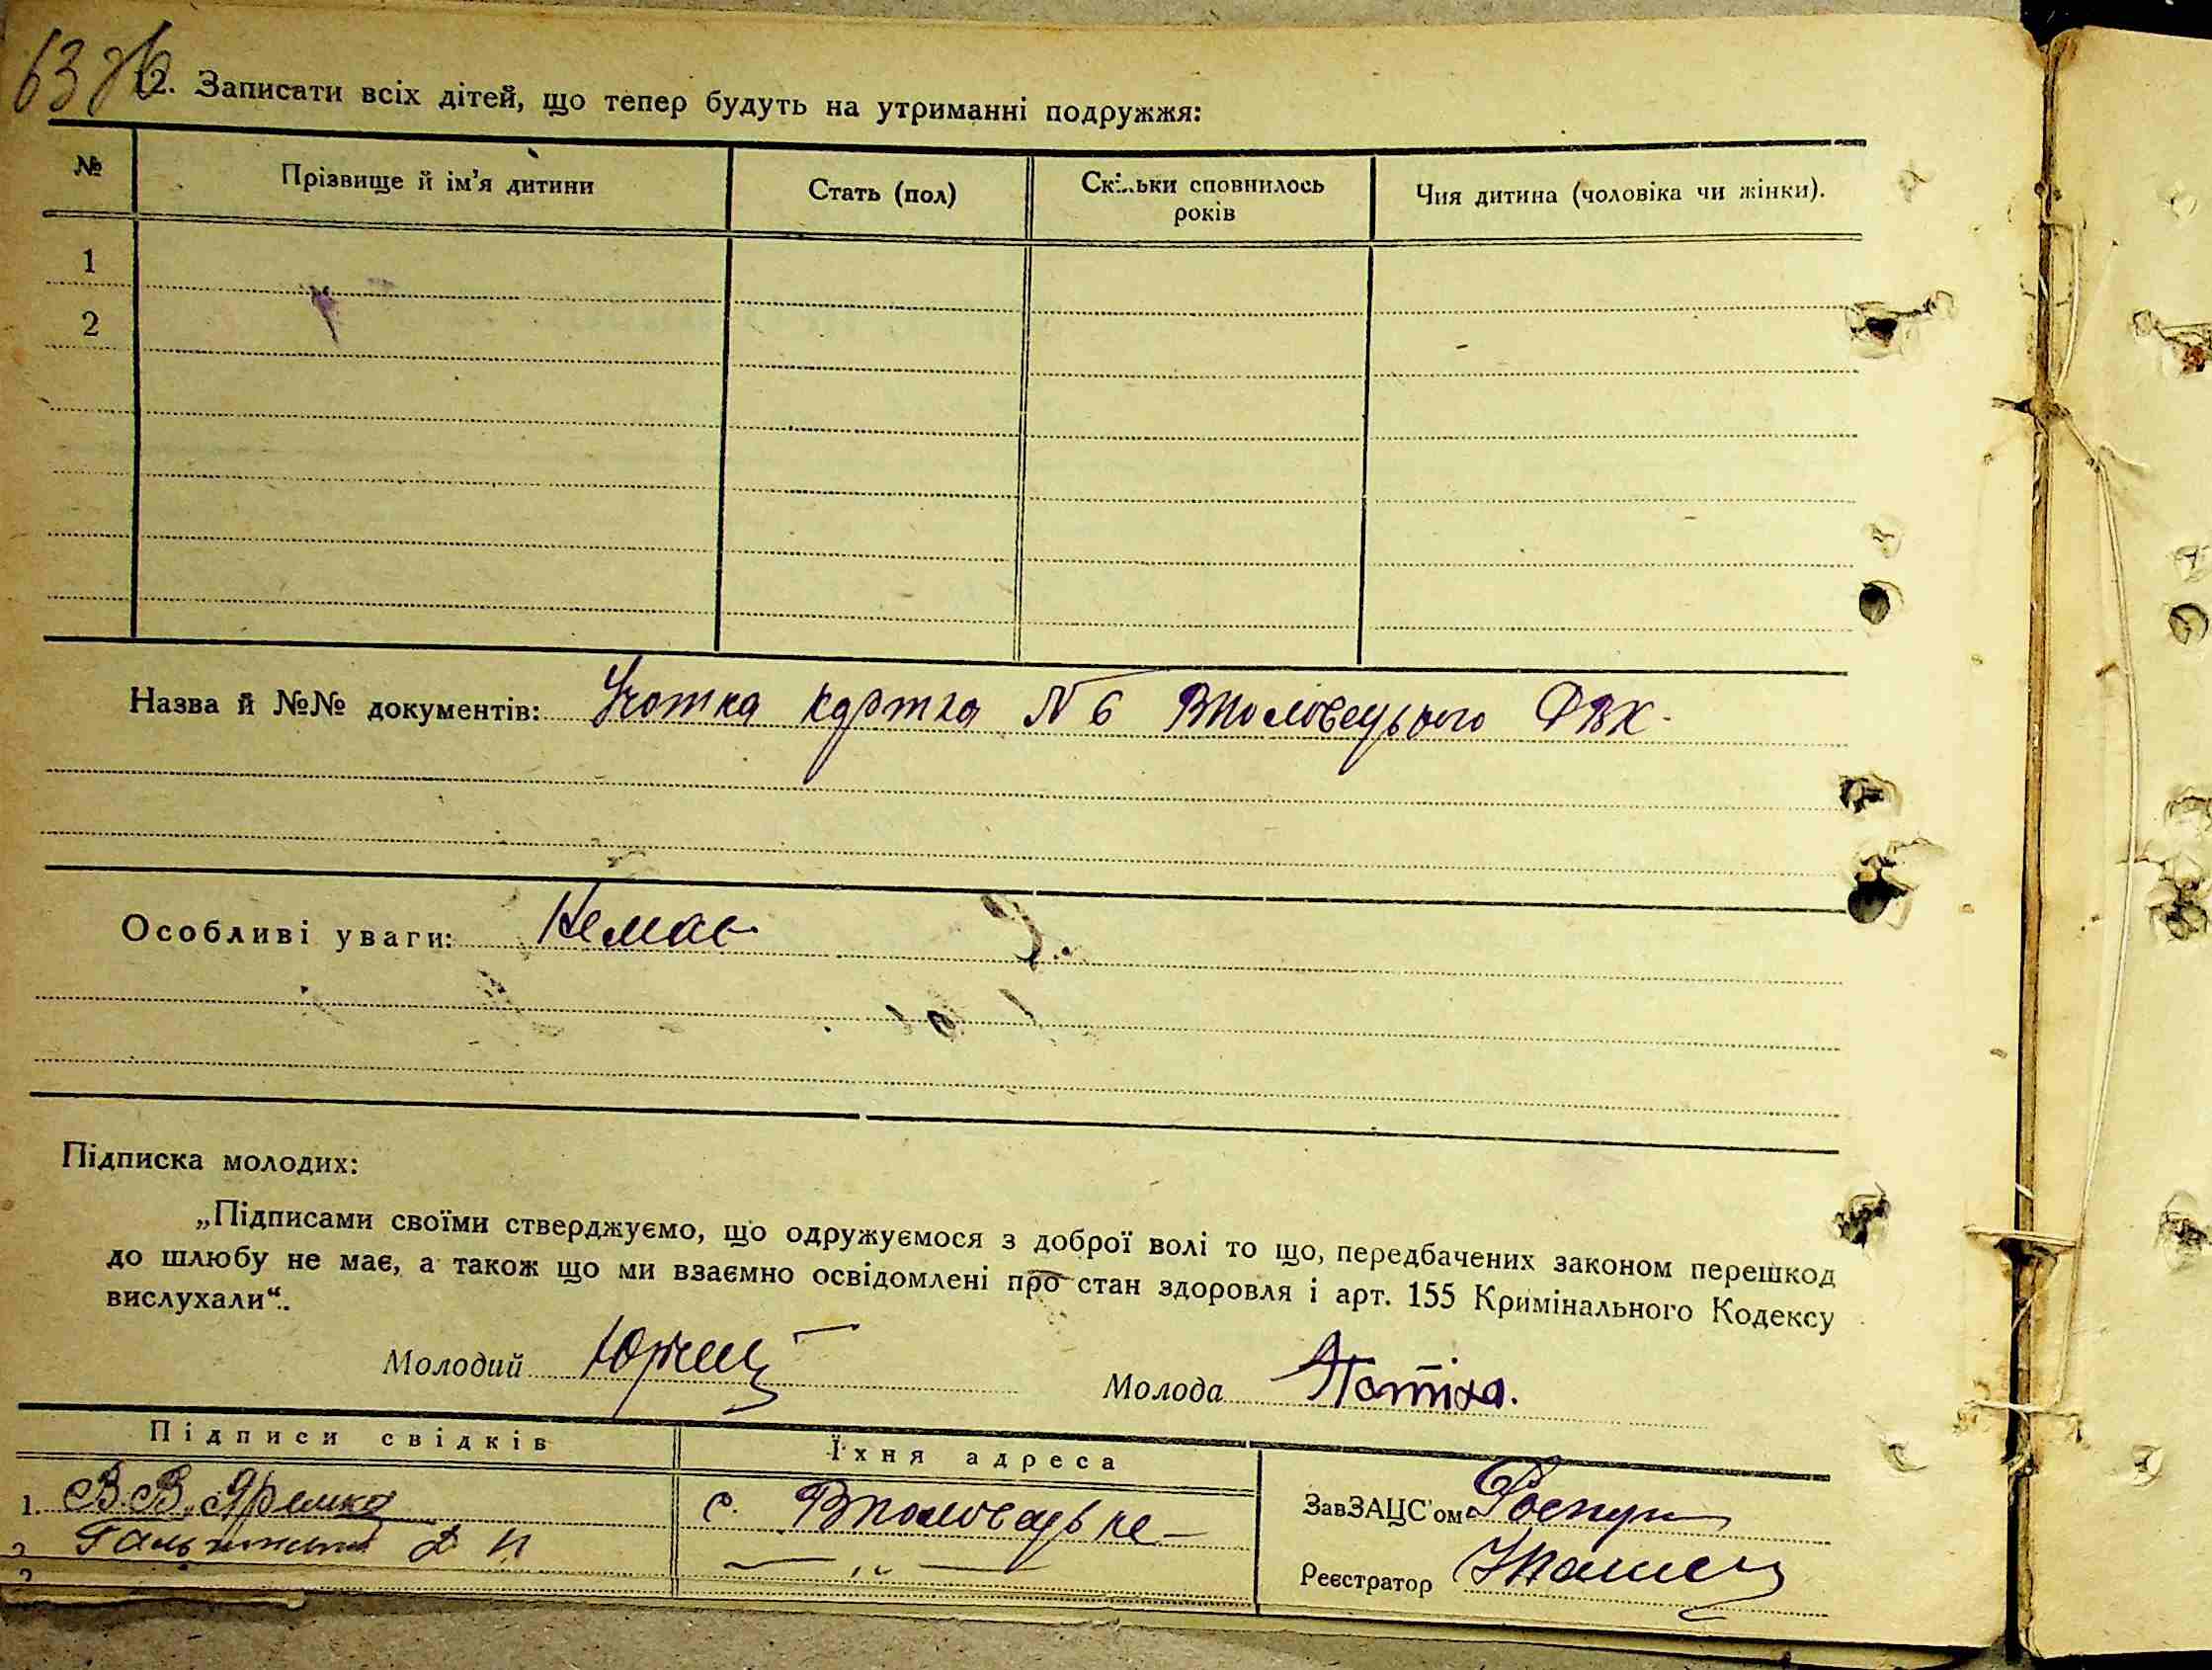 63 зв
12. Записати всіх дітей, що тепер будуть на утриманні подружжя:
№ Прізвище й ім’я дитини Стать (пол) Скільки сповнилось років Чия дитина (чоловіка чи жінки).
1
2
Назва й №№ документів: Учотна картка N 6 Вполовецького
Особливі уваги: Немає
Підписка молодих:
„Підписами своїми стверджуємо, що одружуємося з доброї волі то що, передбачених законом перешкод
до шлюбу не має, а також що ми взаємно освідомлені про стан здоровля і арт. 155 Кримінального Кодексу
вислухали“.
Молодий Молода
Підписи свідків Їхня адреса
1. В.В. Яремко с. Вполовецьке ЗавЗАЦС’ом
2 — „ — Реєстратор